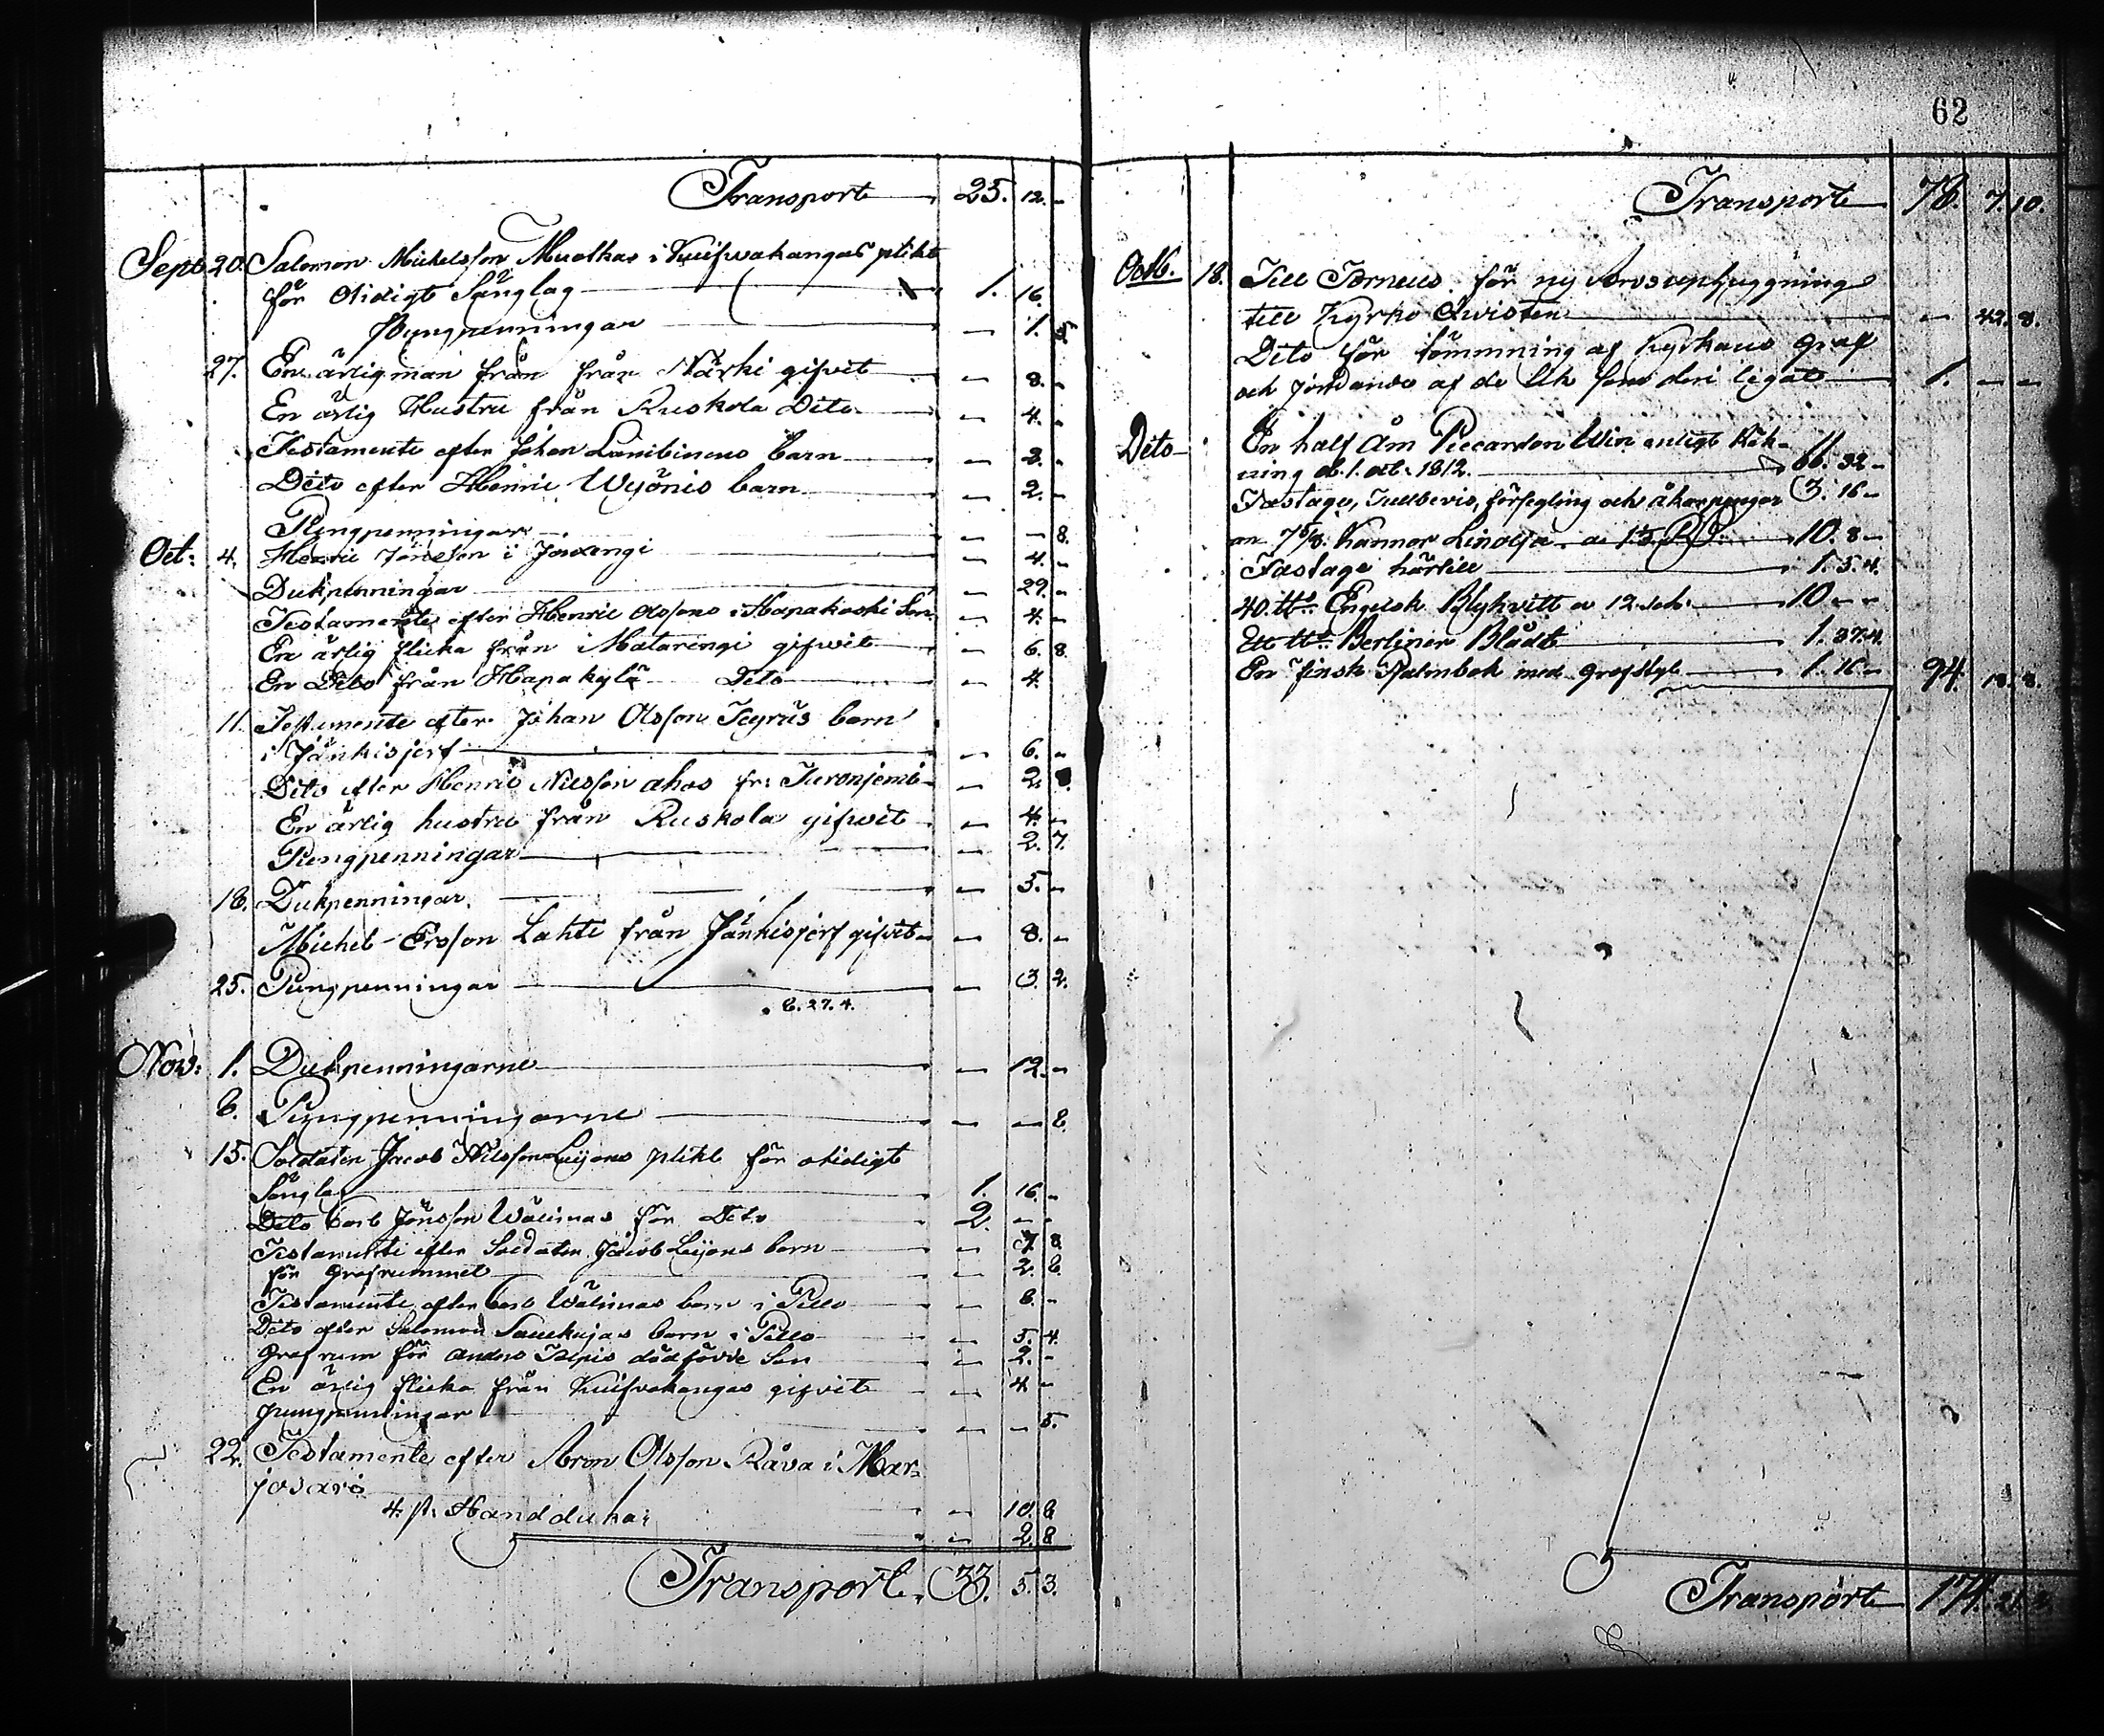 Transport 25. 12. –
Sept 20. Salomon Michelsson Muotkas i Kuifvakangas plikt
för otidigt Sänglag 1. 16.
Pungpenningar – 1. 5.
27. En ärlig man från från Närki gifvit – 8. –
En ärlig Hustru från Ruskola Dito – 4. –
Testamente efter Johan barn – 2. –
Dito efter Henric Wyönis barn – 2. –
Pungpenningar – – 8.
Oct: 4. Henric Jönsson i Jouxengi – 4. –
Dukpenningar – 29. –
Testamente efter Henric Olssons i Hapakoski Son – 4. –
En ärlig flicka från Matarengi gifvit – 6. 8.
En Dito från Hapakylä Dito – 4.
11. Testamente efter Johan Olsson barn
i Jänkisjerf – 6. –
Dito efter Henric Nilsson ahos fr: – 2. 8.
En ärlig hustru från Ruskola gifvit – 4. –
Pungpenningar – 2. 7.
18. Dukpenningar – 5. –
Michel Ersson Lahti från Jänkisjerf gifvit – 8. –
25. Pungpenningar – 3. 2.
6. 27. 4.
Nov: 1. Dukpenningarne – 12. –
Pungpenningarne – –
15. Soldaten Jacob Nilsson Leijons plikt för otidigt
Sänglag 1. 16. –
Dito Carl Jönsson Wälimas för Dito 2. – –
Testamente efter Soldaten Jacob Leijons barn – 8.
för Grafrummet – 2.
Testamente efter Carl Wälimas barn i Pello – –
Dito efter Salomon barn i Pello – 5. 4.
Grafrum för Anders dödfödde Son – 2. –
En ärlig flicka från Kuifvakangas gifvit – 4 –
pungpenningar – – 5.
22. Testamente efter Aron Olsson Råva i Mar=
josari
4. st. Handdukar – 10. 6
– 2. 8
Transport. 33. 5. 3.
62
Transport 78. 7. 10.
Octb. 18. Till Torneus för ny
till Kyrko – 42. 8.
Dito för tömmning af Kyrkans graf
och jordande af de lik som deri legat 1. – –
Dito En half Åm Piccardon Win enligt Räk=
ning d. 1. oct. 1812. 66. 32 –
Fastage, Tullbevis, försegling och åkarpengar 3. 16 –
7 5/8. Kannor Linolja a 10. 8 –
Fastage härtill 1. 5. 4.
40. ttr Engelsk Blyhvitt a 12. sch. 10 – –
Ett tt Berliner Blådt 1. 37. 4.
En finsk Psalmbok med grofstyl 1. 16 – 94. 18. 8.
Transport 174.